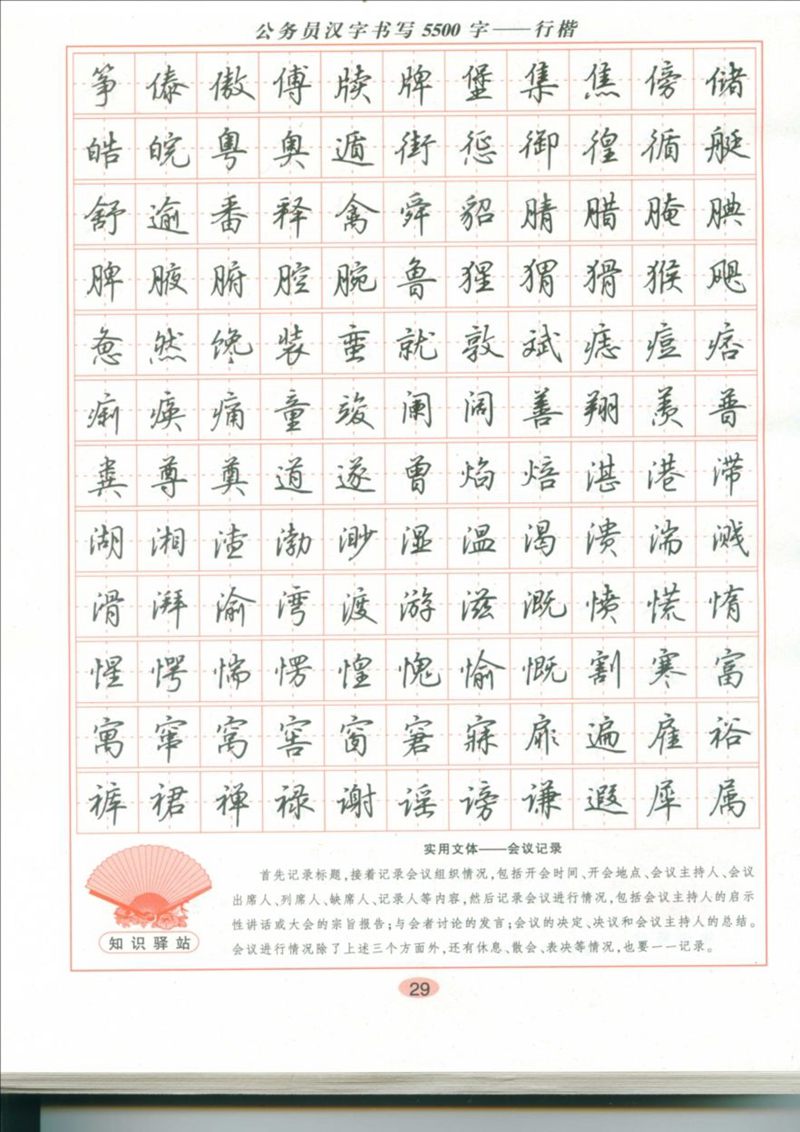 公务员汉字书写5500字——行楷
筝傣傲傅牍牌堡集焦傍储
皓皖粤奥遁街惩御徨循艇
舒逾番释禽舜貂腈腊腌腆
脾腋腑腔腕鲁猩猬猾猴飓
惫然馋装蛮就敦斌痣痘痞
痢痪痛童竣阑阔善翔羡普
粪尊奠道遂曾焰焙湛港滞
湖湘渣渤渺湿温渴溃湍溅
滑湃渝湾渡游滋溉愤慌惰
惺愕惴愣惶愧愉慨割寒富
寓窜窝窖窗窘寐扉遍雇裕
裤裙禅禄谢谣谤谦遐犀属
实用文体——会议记录
首先记录标题,接着记录会议组织情况,包括开会时间、开会地点、会议主持人、会议
出席人、列席人、缺席人、记录人等内容,然后记录会议进行情况,包括会议主持人的启示
性讲话或大会的宗旨报告;与会者讨论的发言;会议的决定、决议和会议主持人的总结。
会议进行情况除了上述三个方面外,还有休息、散会、表决等情况,也要一一记录。
知识驿站
29